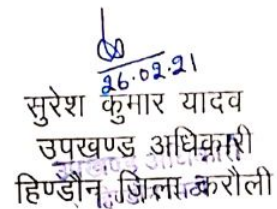 26.02.21
सुरेश कुमार यादव
उपखण्ड अधिकारी
हिण्डौन जिला करौली